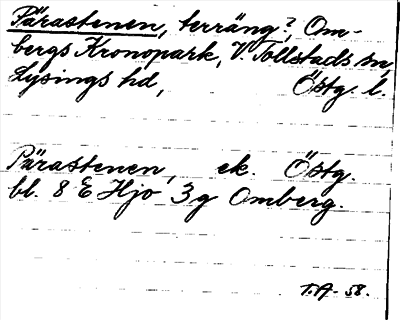 Pärastenen, terräng?, Om-
bergs Kronopark, V. Tollstads sn,
Lysings hd, Östg. l.
Pärastenen, ek. Östg.
bl. 8 E Hjo 3g Omberg.
T.A. 58.